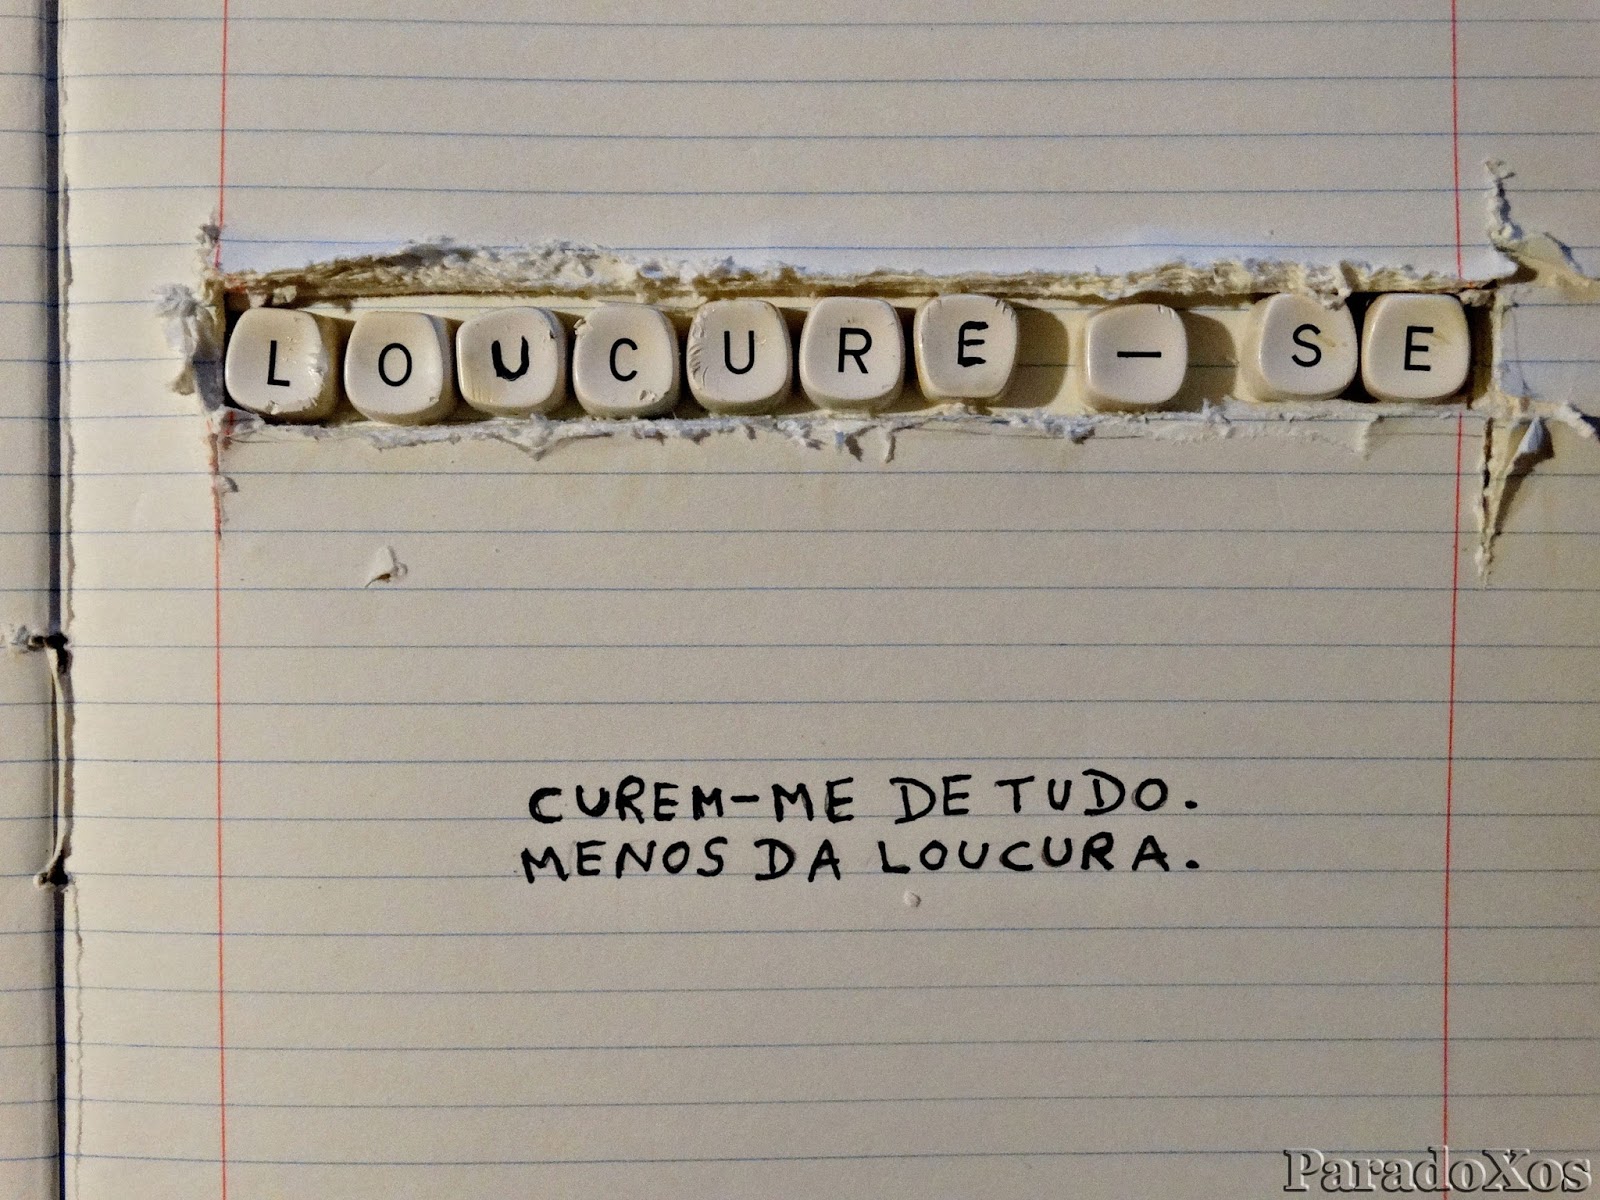 LOUCURE – SE
CUREM-ME DE TUDO.
MENOS DA LOUCURA.
ParadoXos